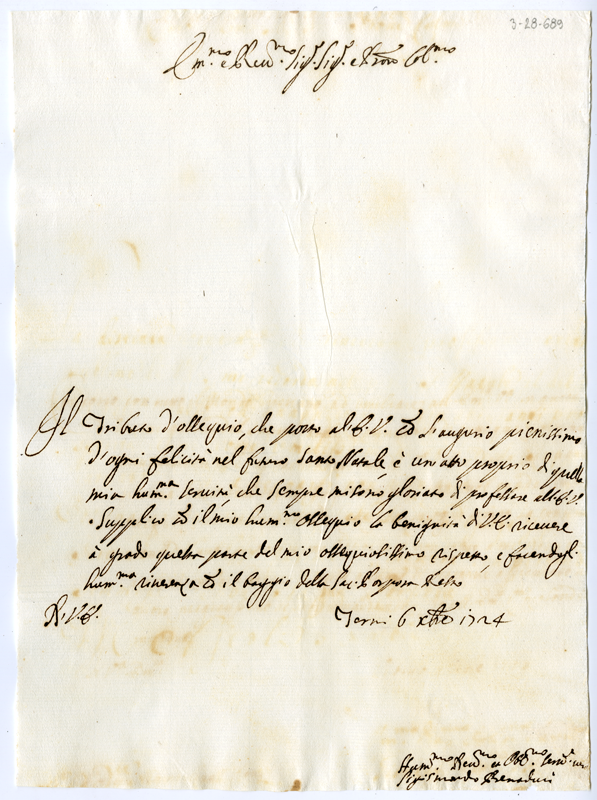 3-28-689
Em.mo e Rev.mo Sig.r Sig.r e Pron Col.mo
Il Tributo d'ossequio, che porto all'E.V. con l'augurio pienissimo
d'ogni felicità nel futuro Santo Natale, è un atto proprio di quella
mia hum.ma servitù, che sempre mi sono gloriato di professare all'E.V.
Supplico con il mio hum.mo ossequio la benignità di V.E. ricevere
à grado questa parte del mio ossequiosissimo rispetto, e facendogli
hum.ma riverenza con il baggio della Sac. Porpora resto
D. V.E. Terni 6 xbre 1724
Hum.mo Dev.mo et Obb.mo Serv.
Sigismondo